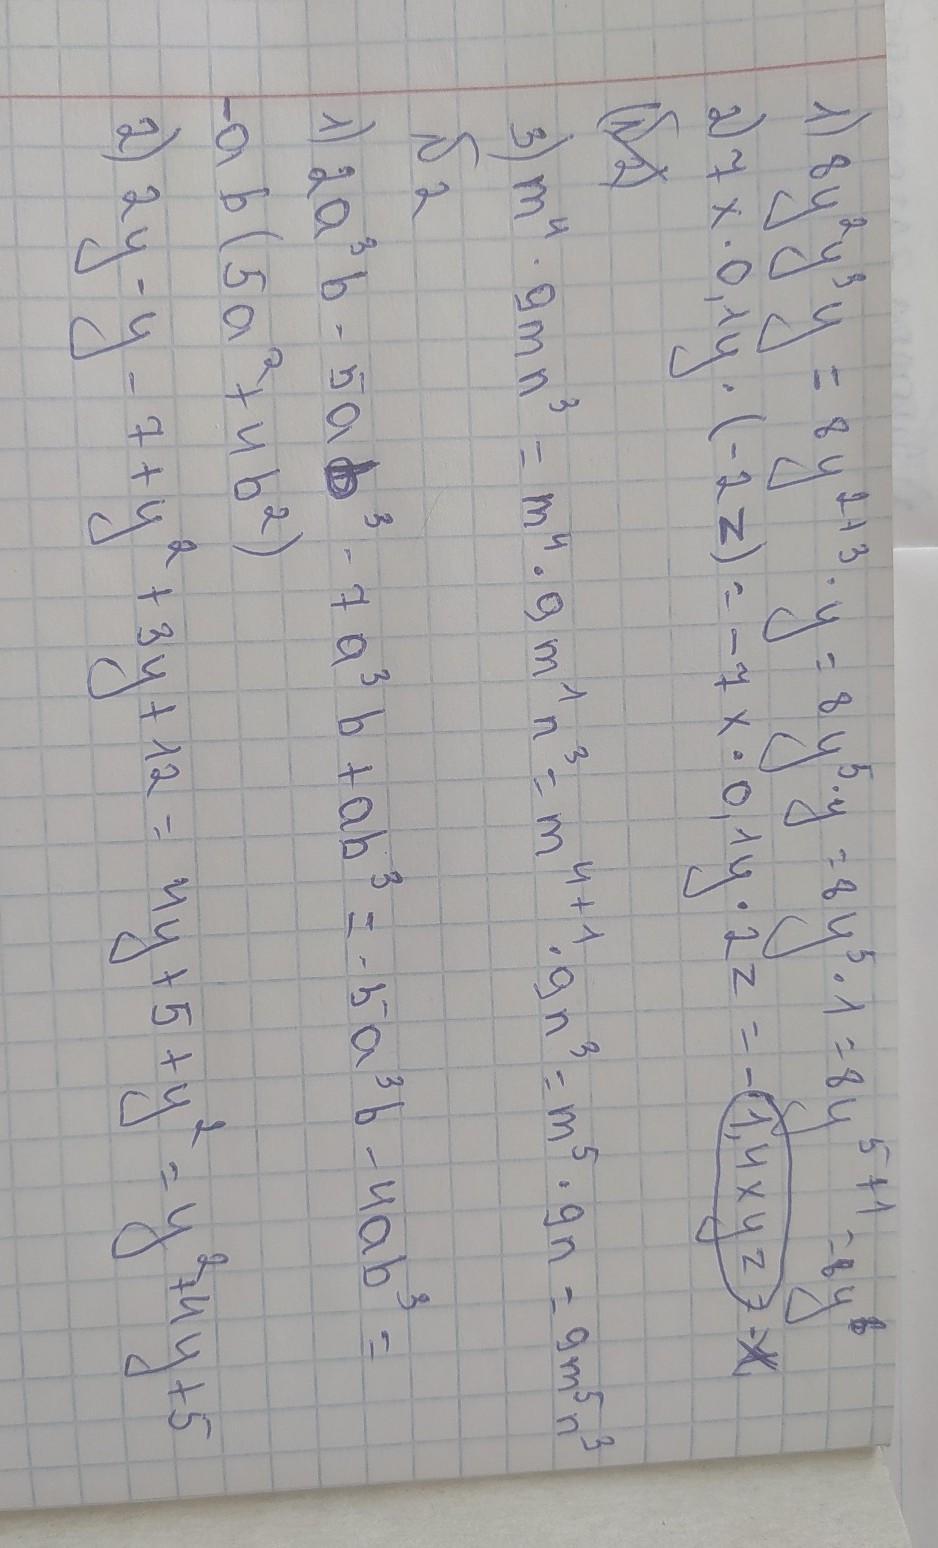 1) 8y²y³y = 8y²⁺³·y = 8y⁵·y = 8y⁵·1 = 8y⁵⁺¹ = 8y⁶
2) 7x·0,1y·(-2z) = -7x·0,1y·2z = -1,4xyz
(№2)
3) m⁴·9mn³ = m⁴·9m¹n³ = m⁴⁺¹·9n³ = m⁵·9n = 9m⁵n³
№2
1) 2a³b - 5ab³ - 7a³b + ab³ = -5a³b - 4ab³ =
-ab(5a² + 4b²)
2) 2y - y - 7 + y² + 3y + 12 = 4y + 5 + y² = y² + 4y + 5